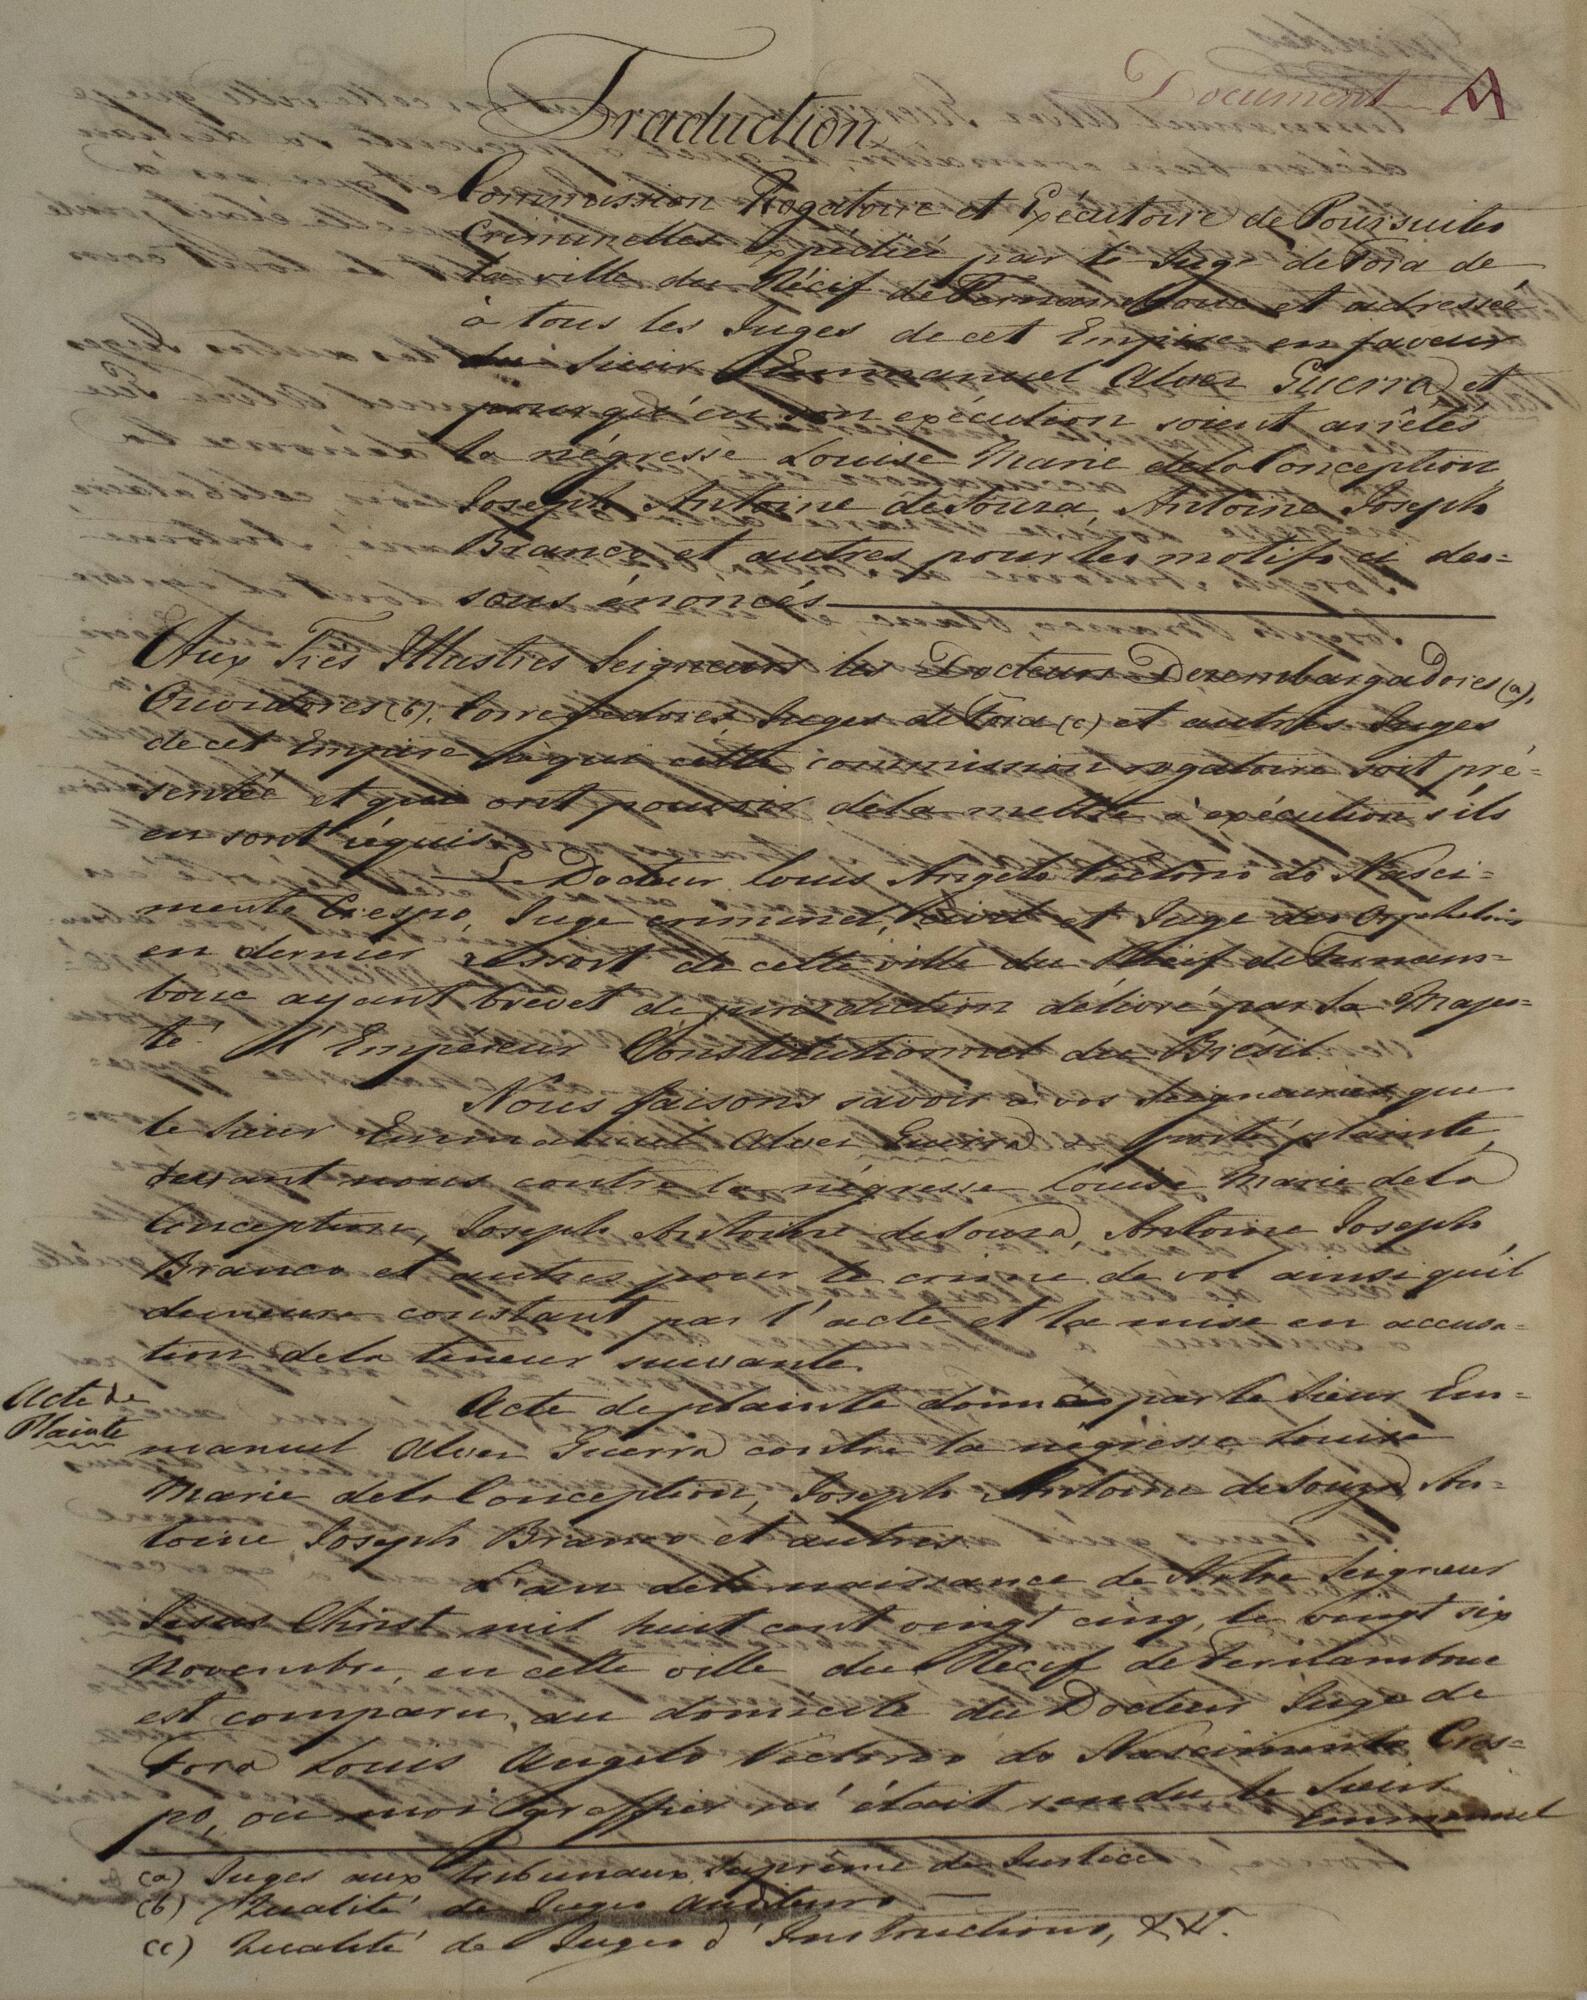 Document A
Traduction
Commission Rogatoire et Exécutoire de Poursuites
Criminelles expédiée par le Juge de Fora de
la ville du Récif de Fernambouc et adressée
à tous les Juges de cet Empire en faveur
du Sieur Emmanuel Alves Guerra et
pourqu'en son exécution soient arrêtés
la négresse Louise Marie dela Conception,
Joseph Antoine deSouza, Antoine Joseph
Branco et autres pour les motifs ci des=
sous énoncés
Aux Très Illustres Seigneurs les Docteurs Dezembargadores (a),
Ouvidores (b), Corregedores, Juges de Fora (c) et autres Juges
de cet Empire à qui cette commission rogatoire soit pré=
sentée et qui ont pouvoir dela mettre à exécution s'ils
en sont réquis.
Le Docteur Louis Angelo Victorio do Nasci=
mento Crespo, Juge criminel, Civil et Juge des Orphelins
en dernier ressort de cette ville du Récif de Fernam=
bouc ayant brevet de jurisdiction délivré par Sa Majes=
té l'Empereur Constitutionnel du Brésil.
Nous faisons savoir à vos Seigneuries que
le Sieur Emmanuel Alves Guerra a porté plainte
devant nous contre la négresse Louise Marie dela
Conception, Joseph Antoine deSouza, Antoine Joseph
Branco et autres pour le crime de vol ainsi qu'il
demeure constant par l'acte et la mise en accusa=
tion dela teneur suivante.
Acte de
Plainte
Acte de plainte donnée par le Sieur Em=
manuel Alves Guerra contre la négresse Louise
Marie dela Conception, Joseph Antoine deSouza, An=
toine Joseph Branco et autres.
L'an dela naissance de Notre Seigneur
Jesus Christ mil huit cent vingt cinq, le vingt six
Novembre, en cette ville du Récif de Fernambouc
est comparu, au domicile du Docteur Juge de
Fora Louis Angelo Victorio do Nascimento Cres=
po, ou moi Greffier m'était rendu le Sieur
Emmanuel
(a) Juges aux tribunaux Suprême de Justice
(b) Qualité de Juges auditeurs
(c) Qualité de Juges d'Instructions, &&.